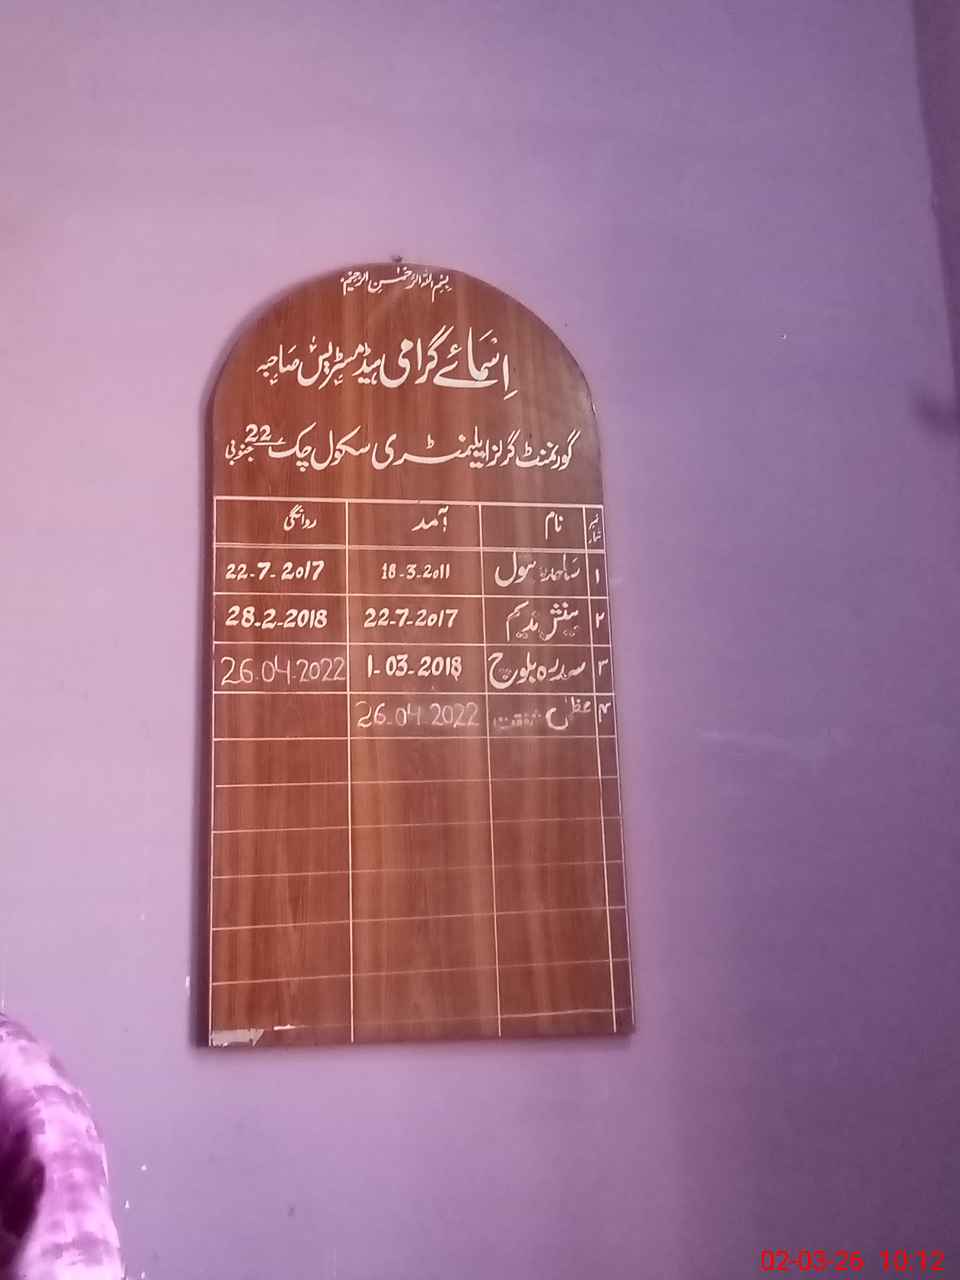 بسم اللہ الرحمٰن الرحیم
اسمائے گرامی ہیڈ مسٹریس صاحبہ
گورنمنٹ گرلز ایلیمنٹری سکول چک 22 جنوبی
نمبر شمار نام آمد روانگی
۱ ساجدہ بتول 18-3-2011 22-7-2017
۲ ندیم 22-7-2017 28-2-2018
۳ سدرہ بلوچ 1-03-2018 26.04.2022
۴ عظمیٰ 26.04.2022
02-03-26 10:12